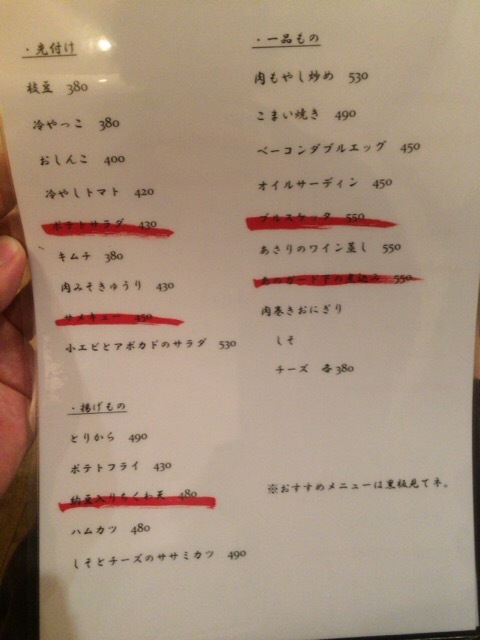 ・先付け
枝豆 380
冷やっこ 380
おしんこ 400
冷やしトマト 420
ポテトサラダ 430
キムチ 380
肉みそきゅうり 430
サメキュー 450
小エビとアボカドのサラダ 530
・揚げもの
とりから 490
ポテトフライ 430
納豆入りちくわ天 480
ハムカツ 480
しそとチーズのササミカツ 490
・一品もの
肉もやし炒め 530
こまい焼き 490
ベーコンダブルエッグ 450
オイルサーディン 450
ブルスケッタ 550
あさりのワイン蒸し 550
煮込み 550
肉巻きおにぎり
しそ
チーズ 各380
※おすすめメニューは黒板見てネ。